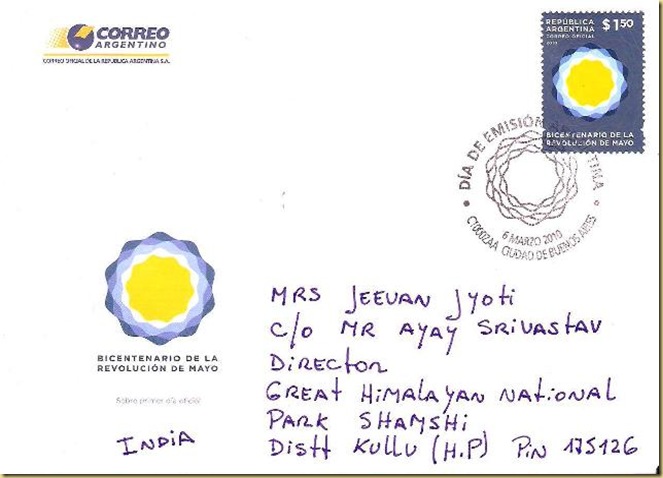 CORREO
ARGENTINO
CORREO OFICIAL DE LA REPUBLICA ARGENTINA S.A.
REPÚBLICA
ARGENTINA
CORREO OFICIAL
2010
$1.50
BICENTENARIO DE LA
REVOLUCIÓN DE MAYO
DÍA DE EMISIÓN
TINA
6 MARZO 2010
C1000ZAA CIUDAD DE BUENOS AIRES
BICENTENARIO DE LA
REVOLUCIÓN DE MAYO
Sobre primer día oficial
INDIA
MRS JEEVAN JYOTI
C/O MR AYAY SRIVASTAV
DIRECTOR
GREAT HIMALAYAN NATIONAL
PARK SHAMSHI
DISTT KULLU (H.P) PIN 175126